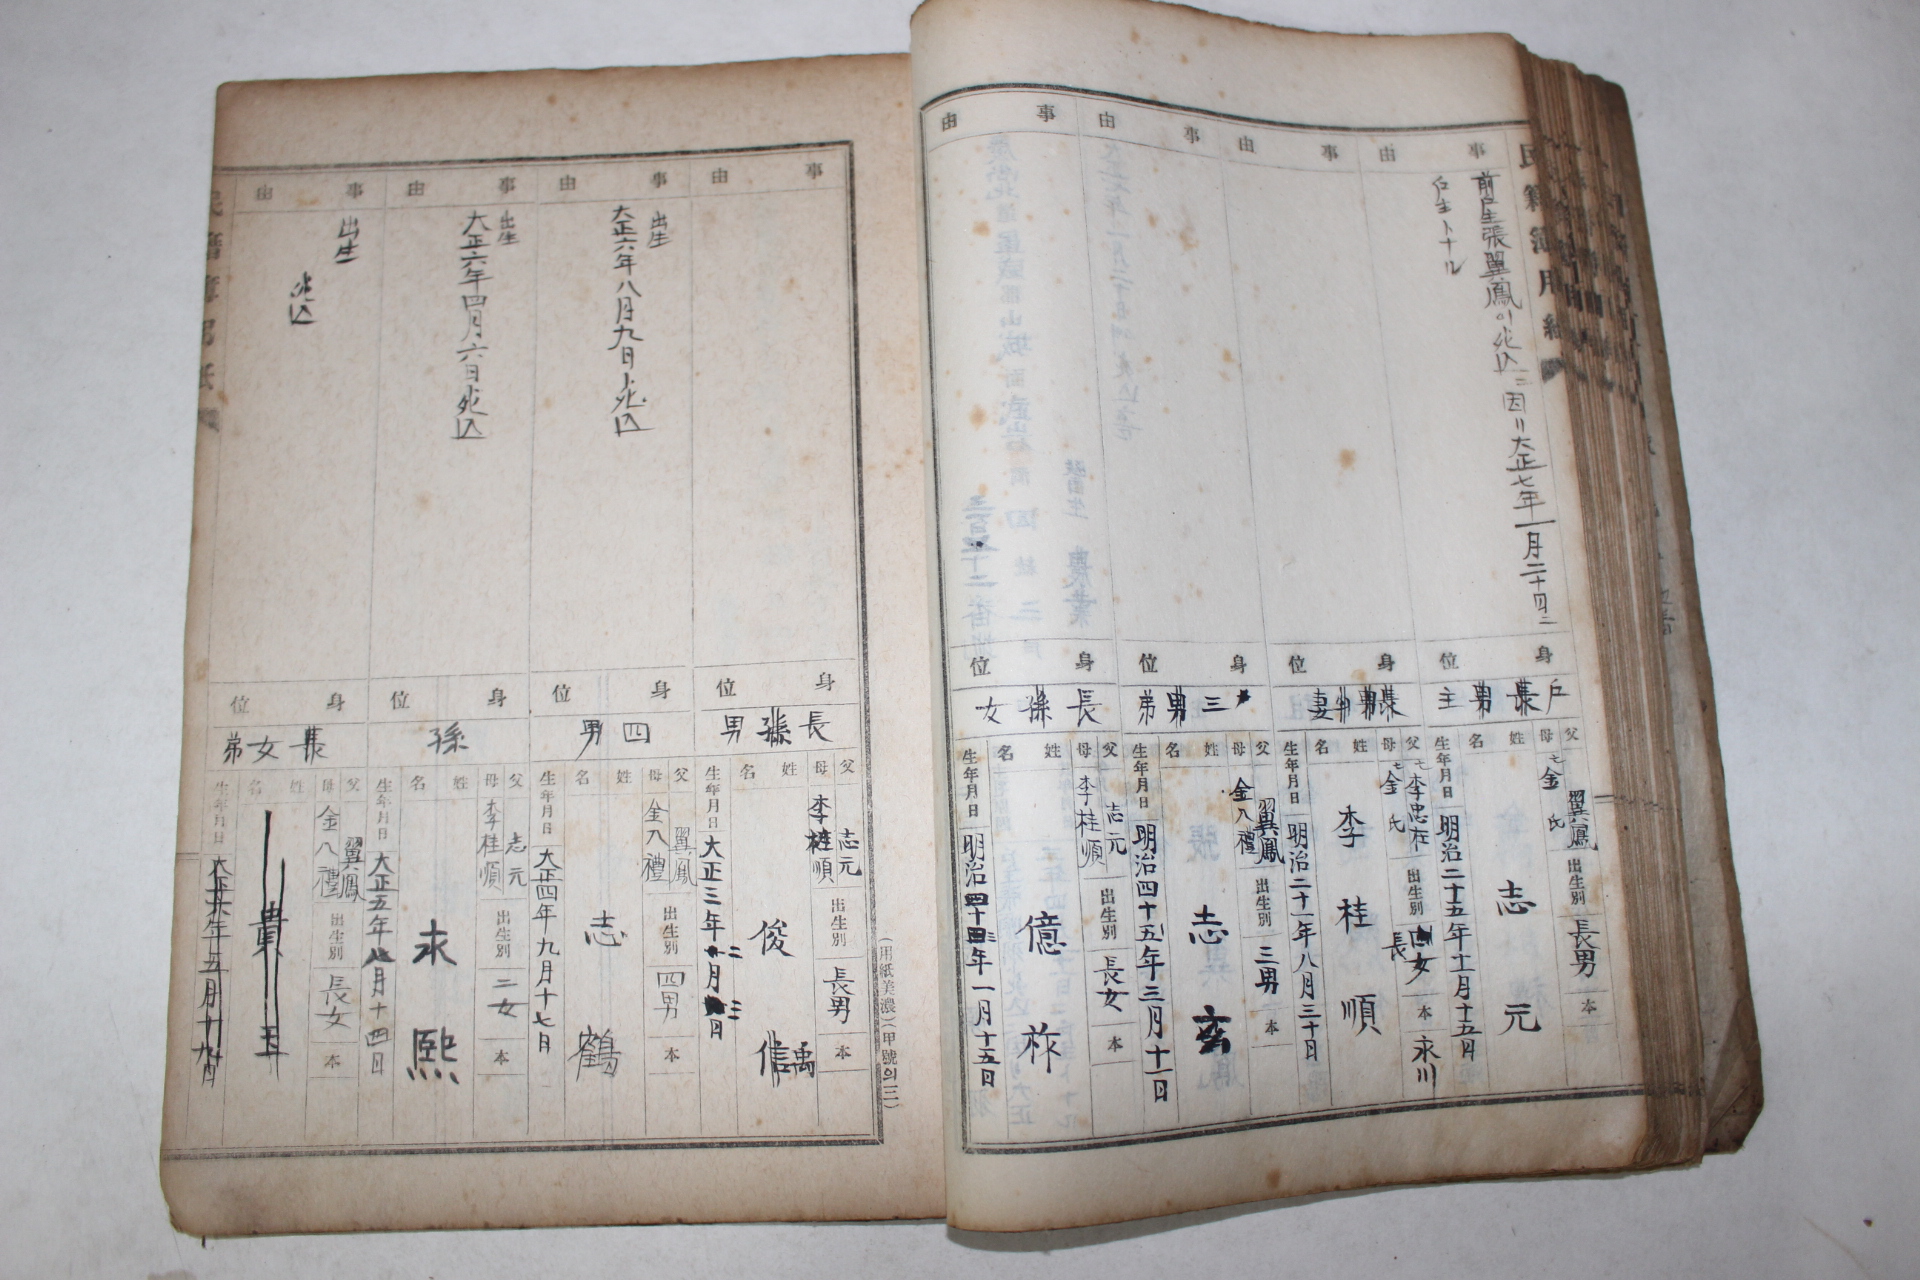 民籍簿用紙
事由
前戶主張翼鳳이死亡ニ因リ大正七年一月二十四日
戶主トナル
身位
戶主
長男
父 翼鳳
母 金氏
出生別 長男
本
姓名 志元
生年月日 明治二十五年十一月十五日
事由
身位
妻
父 李忠在
母 金氏
出生別 長女
本 永川
姓名 李桂順
生年月日 明治二十一年八月三十日
事由
身位
三男弟
父 翼鳳
母 金八禮
出生別 三男
本
姓名 志玄
生年月日 明治四十五年三月十一日
事由
身位
長孫女
父 志元
母 李桂順
出生別 長女
本
姓名 億祚
生年月日 明治四十四年一月十五日
(用紙美濃)(甲號의二)
事由
身位
長孫男
父 志元
母 李桂順
出生別 長男
本
姓名 俊
生年月日 大正三年
事由
出生
大正六年八月九日死亡
身位
四男
父 翼鳳
母 金八禮
出生別 四男
本
姓名 志鶴
生年月日 大正四年九月十七日
事由
出生
大正六年四月六日死亡
身位
孫
父 志元
母 李桂順
出生別 二女
本
姓名 永熙
生年月日 大正五年八月十四日
事由
出生
死亡
身位
長女弟
父 翼鳳
母 金八禮
出生別 長女
本
姓名 貴玉
生年月日 大正六年五月十九日
民籍簿用紙